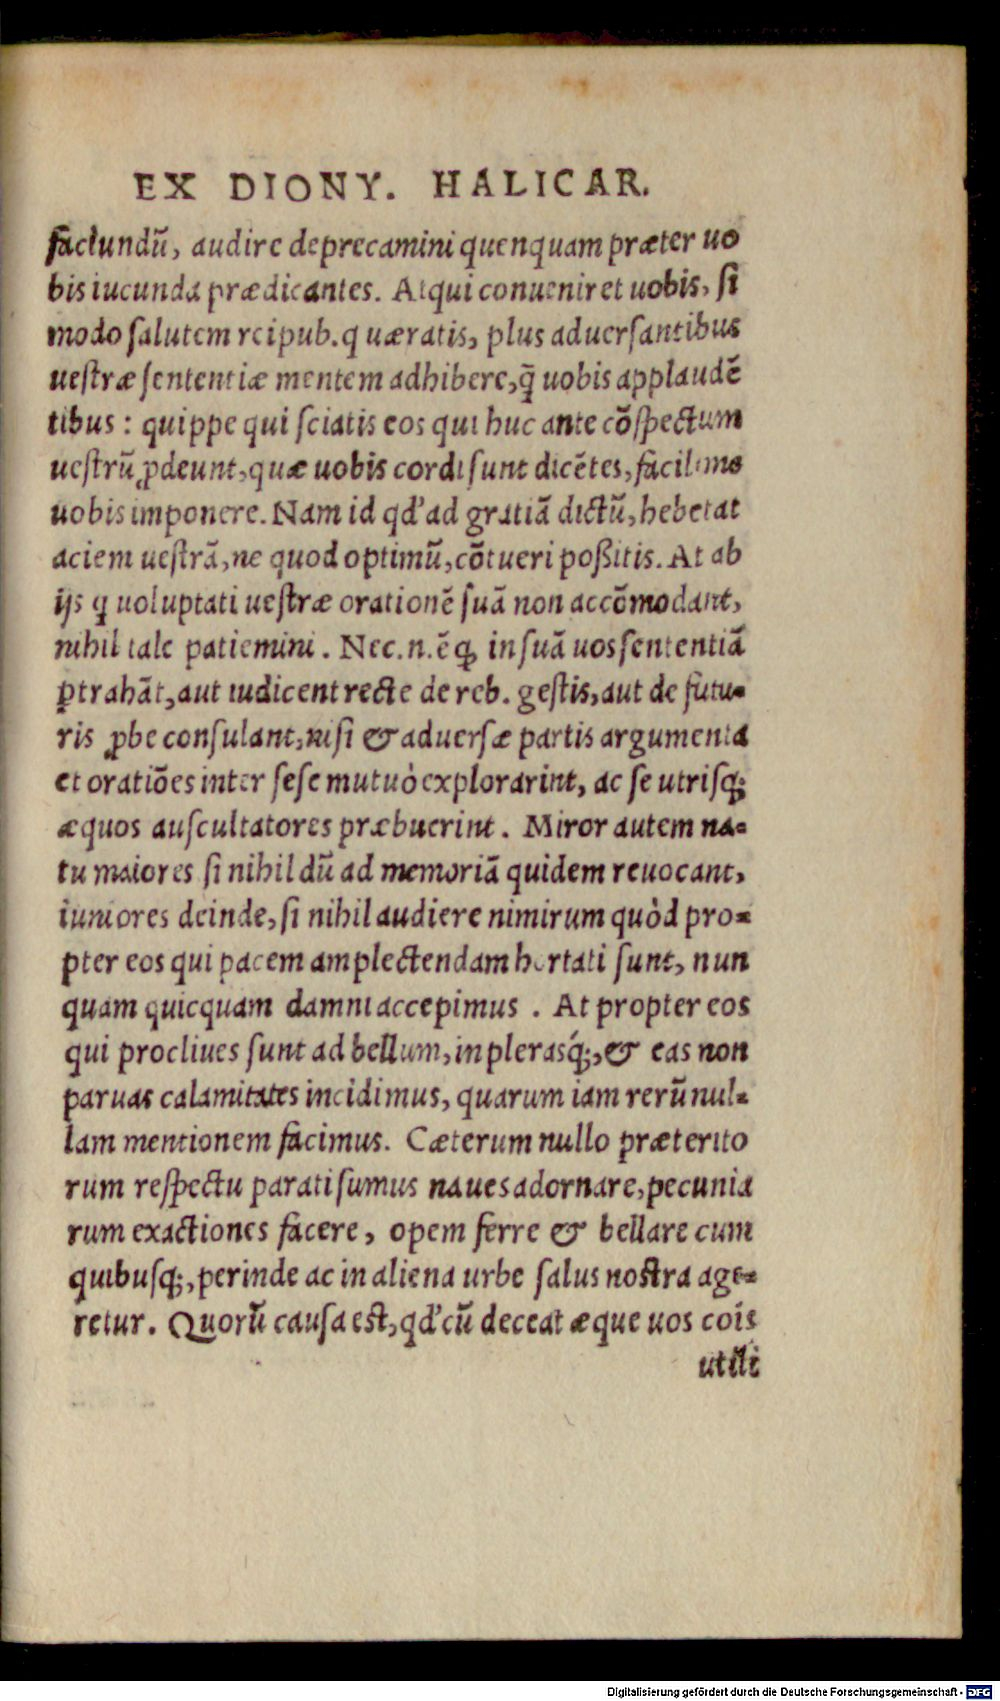 EX DIONY. HALICAR.
factundũ, audire deprecamini quenquam præter uo
bis iucunda prædicantes. Atqui conueniret uobis, si
modo salutem reipub. quæratis, plus aduersantibus
uestræ sententiæ mentem adhibere, q̃ uobis applaudẽ
tibus : quippe qui sciatis eos qui huc ante cõspectum
uestrũ ꝓdeunt, quæ uobis cordi sunt dicẽtes, facilime
uobis imponere. Nam id qd' ad gratiã dictũ, hebetat
aciem uestrã, ne quod optimũ, cõtueri poßitis. At ab
ijs q̃ uoluptati uestræ orationẽ suã non accõmodant,
nihil tale patiemini. Nec. n. ẽ ꝙ in suã uos sententiã
ꝑtrahãt, aut iudicent recte de reb. gestis, aut de futu-
ris ꝓbe consulant, nisi & aduersæ partis argumenta
et oratiões inter sese mutuò explorarint, ac se utrisq;
æquos auscultatores præbuerint. Miror autem na-
tu maiores si nihil dũ ad memoriã quidem reuocant,
iuniores deinde, si nihil audiere nimirum quòd pro-
pter eos qui pacem amplectendam hortati sunt, nun
quam quicquam damni accepimus. At propter eos
qui procliues sunt ad bellum, in plerasq́;, & eas non
paruas calamitates incidimus, quarum iam rerũ nul-
lam mentionem facimus. Cæterum nullo præterito
rum respectu parati sumus naues adornare, pecunia
rum exactiones facere, opem ferre & bellare cum
quibusq;, perinde ac in aliena urbe salus nostra age-
retur. Quorũ causa est, qd' cũ deceat æque uos cois̃
utili
Digitalisierung gefördert durch die Deutsche Forschungsgemeinschaft - DFG